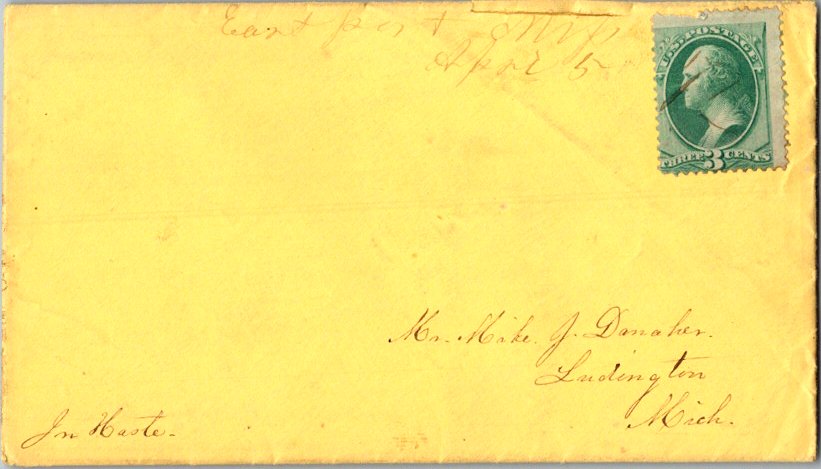 East port Mich
Apr 5
U.S. POSTAGE
THREE 3 CENTS
Mr. Mike. J. Danaher.
Ludington
Mich.
In Haste.